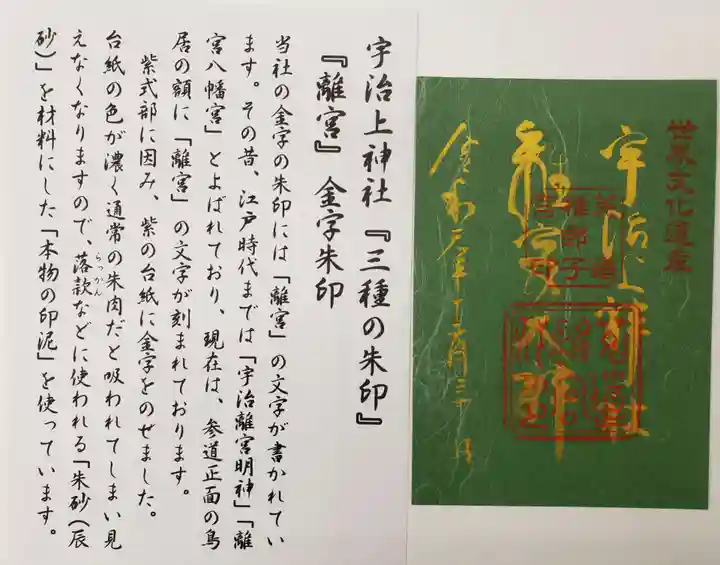 宇治上神社『三種の朱印』
『離宮』金字朱印
当社の金字の朱印には「離宮」の文字が書かれてい
ます。その昔、江戸時代までは「宇治離宮明神」「離
宮八幡宮」とよばれており、現在は、参道正面の鳥
居の額に「離宮」の文字が刻まれております。
紫式部に因み、紫の台紙に金字をのせました。
台紙の色が濃く通常の朱肉だと吸われてしまい見
えなくなりますので、落款などに使われる「朱砂(辰
らっかん
砂)」を材料にした「本物の印泥」を使っています。
世界文化遺産
宇治上神社